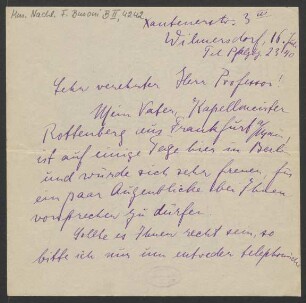 Mus. Nachl. F. Busoni B II, 4242
Xantenerstr. 3
Wilmersdorf, 16. Jan.
Tel. Pfalzbg. 2390
Sehr verehrter Herr Professor!
Mein Vater, Kapellmeister
Rottenberg aus Frankfurt a/Main,
ist auf einige Tage hier in Berlin
und würde sich sehr freuen, für
ein paar Augenblicke bei Ihnen
vorsprechen zu dürfen.
Sollte es Ihnen recht sein, so
bitte ich nur um entweder telephonischen